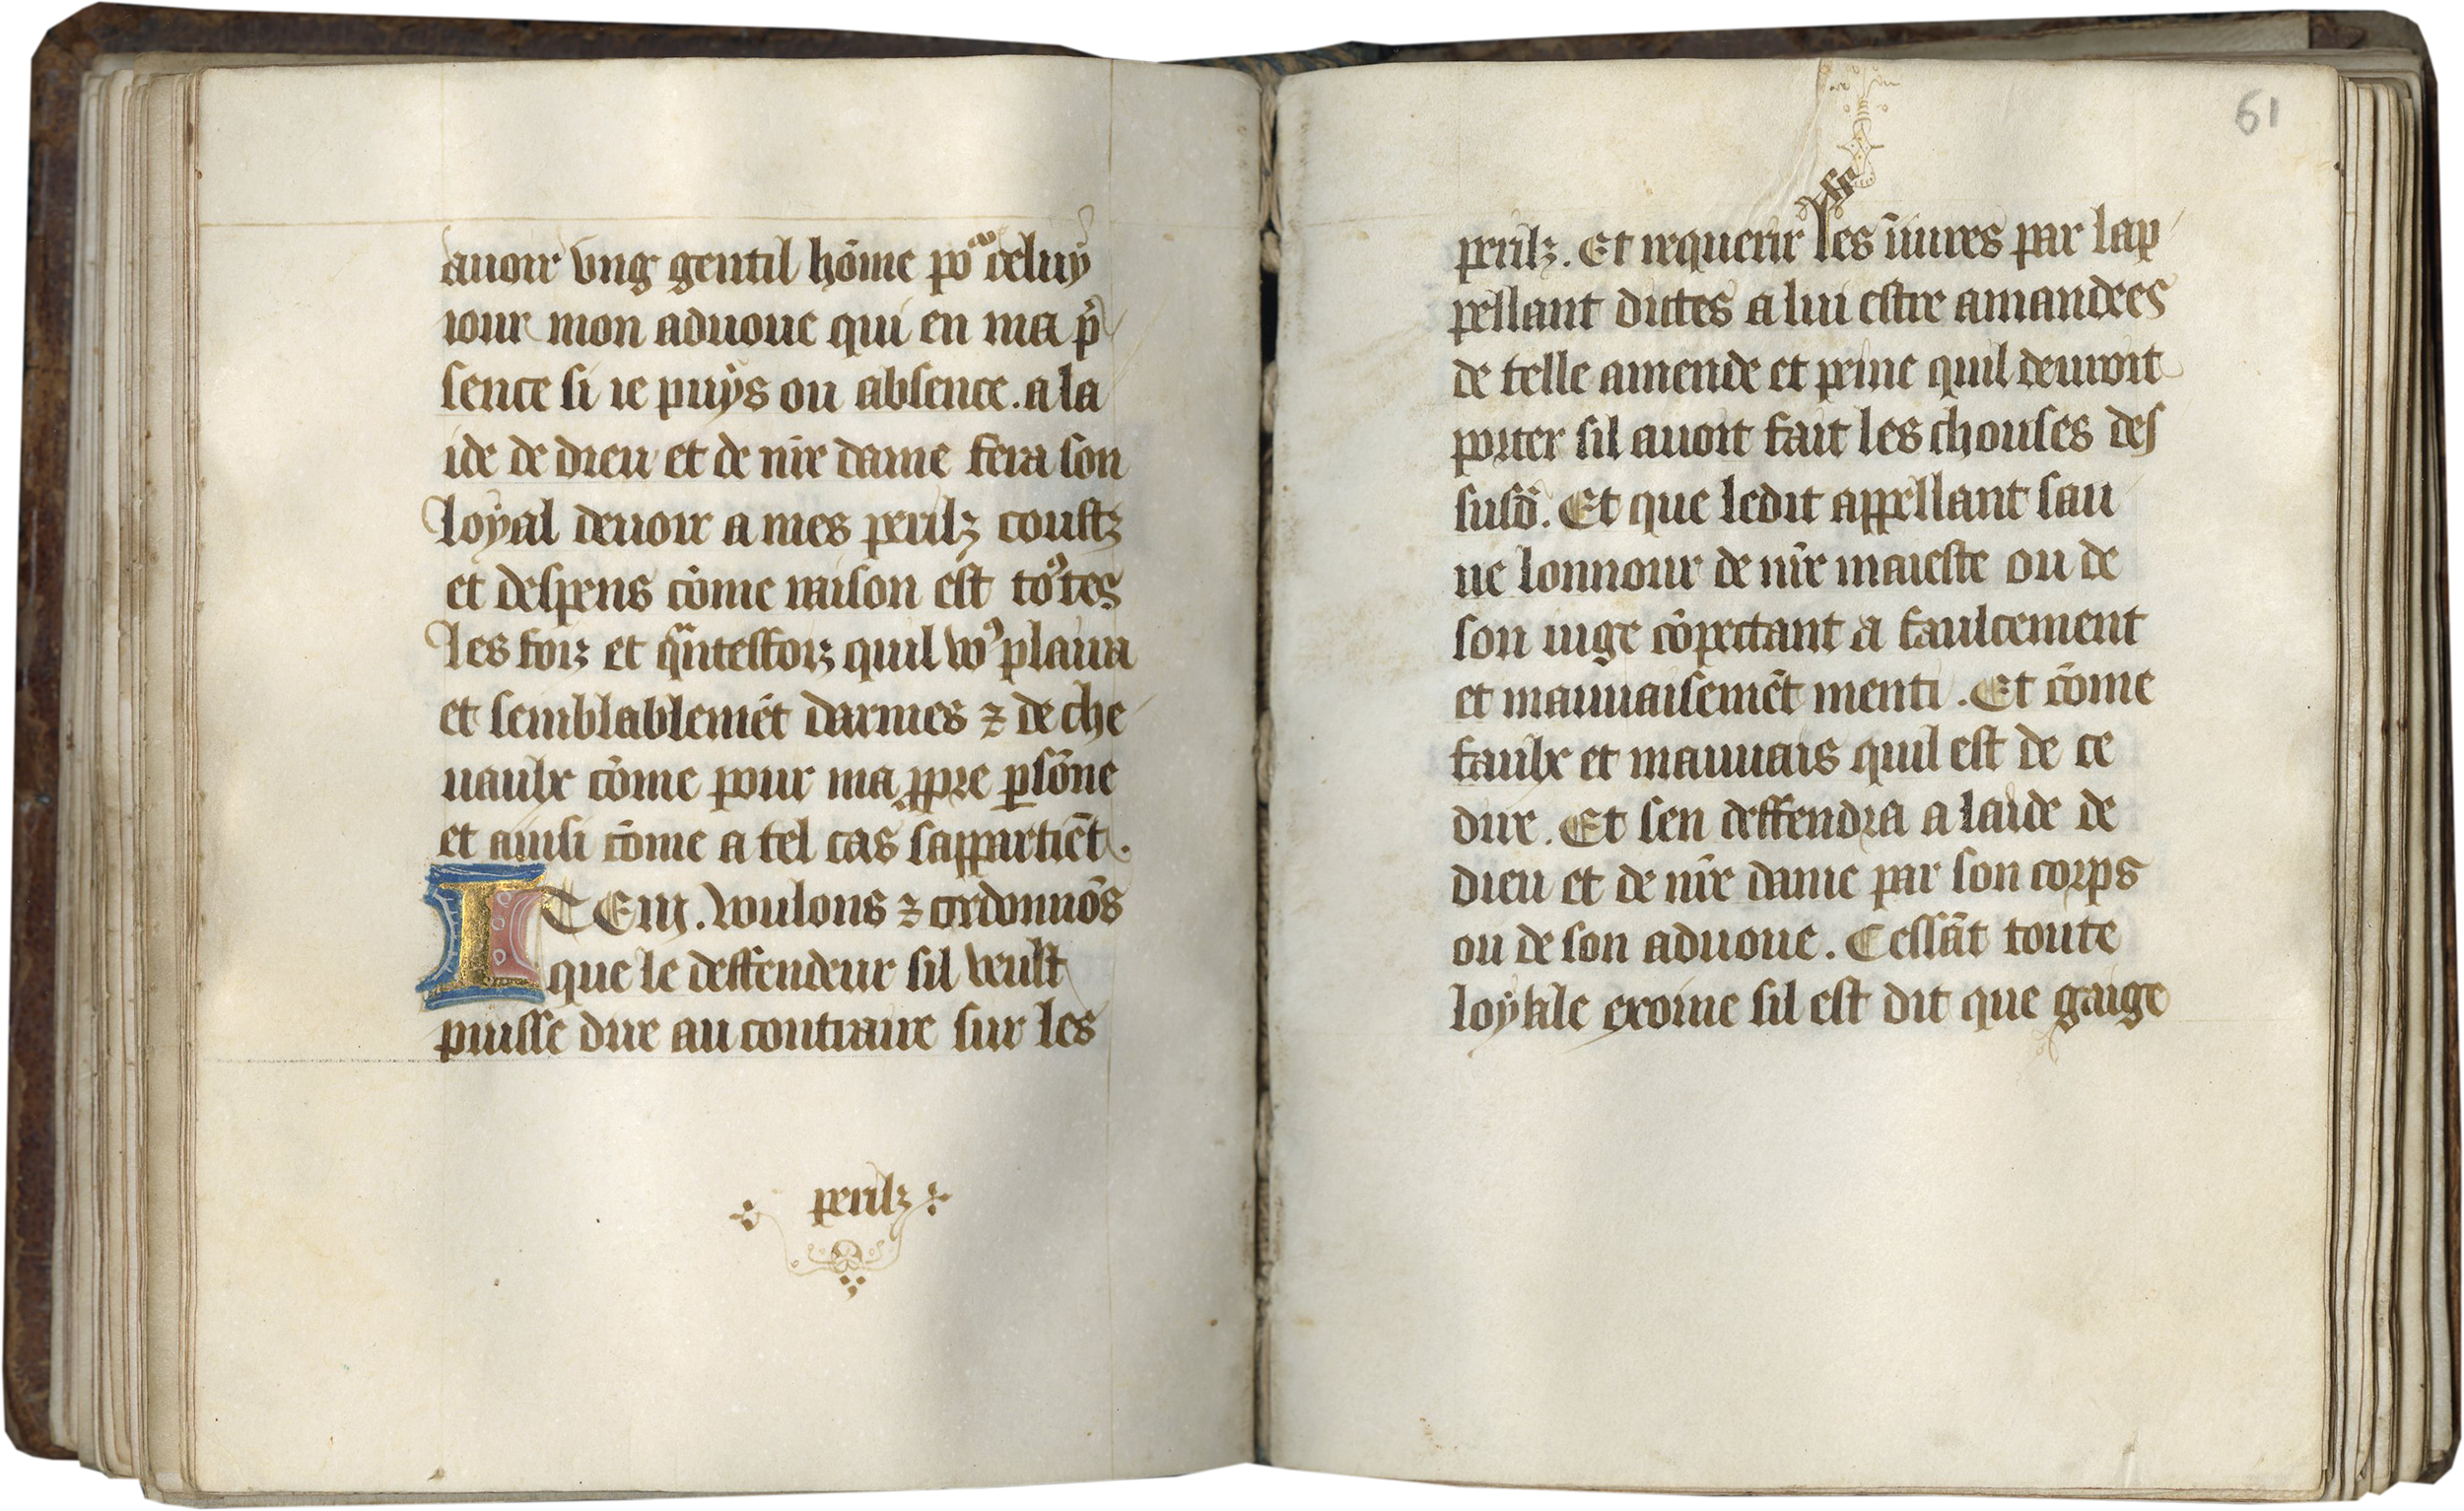 auoir vng gentil hōme poᵘʳ celuy
iour mon aduoue qui en ma p̄
sence si ie puys ou absence. a la
ide de dieu et de nr̄e dame fera son
loyal deuoir a mes perilz coustz
et despens cōme raison est to᷒tes
les foiz et qᵃntesfoiz quil voꝰ plaira
et semblablemēt darmes ⁊ de che
uaulx cōme pour ma ꝓpre ꝑsōne
et ainsi cōme a tel cas sappartiēt.
ITEM. voulons ⁊ ordonnōs
que le deffendeur sil veult
puisse dire au contraire sur les
perilz
61
perilz. Et requerir les iniures par lap
pellant dictes a lui estre amandees
de telle amende et peine quil deuroit
porter sil auoit fait les chouses des
susd̄. Et que ledit appellant sau
ue lonnour de nr̄e maieste ou de
son iuge cōpectant a faulcement
et mauuaisemēt menti. Et cōme
faulx et mauuais quil est de ce
dire. Et sen deffendra a laide de
dieu et de nr̄e dame par son corps
ou de son aduoue. Cessāt toute
loyale exoine sil est dit que gaige